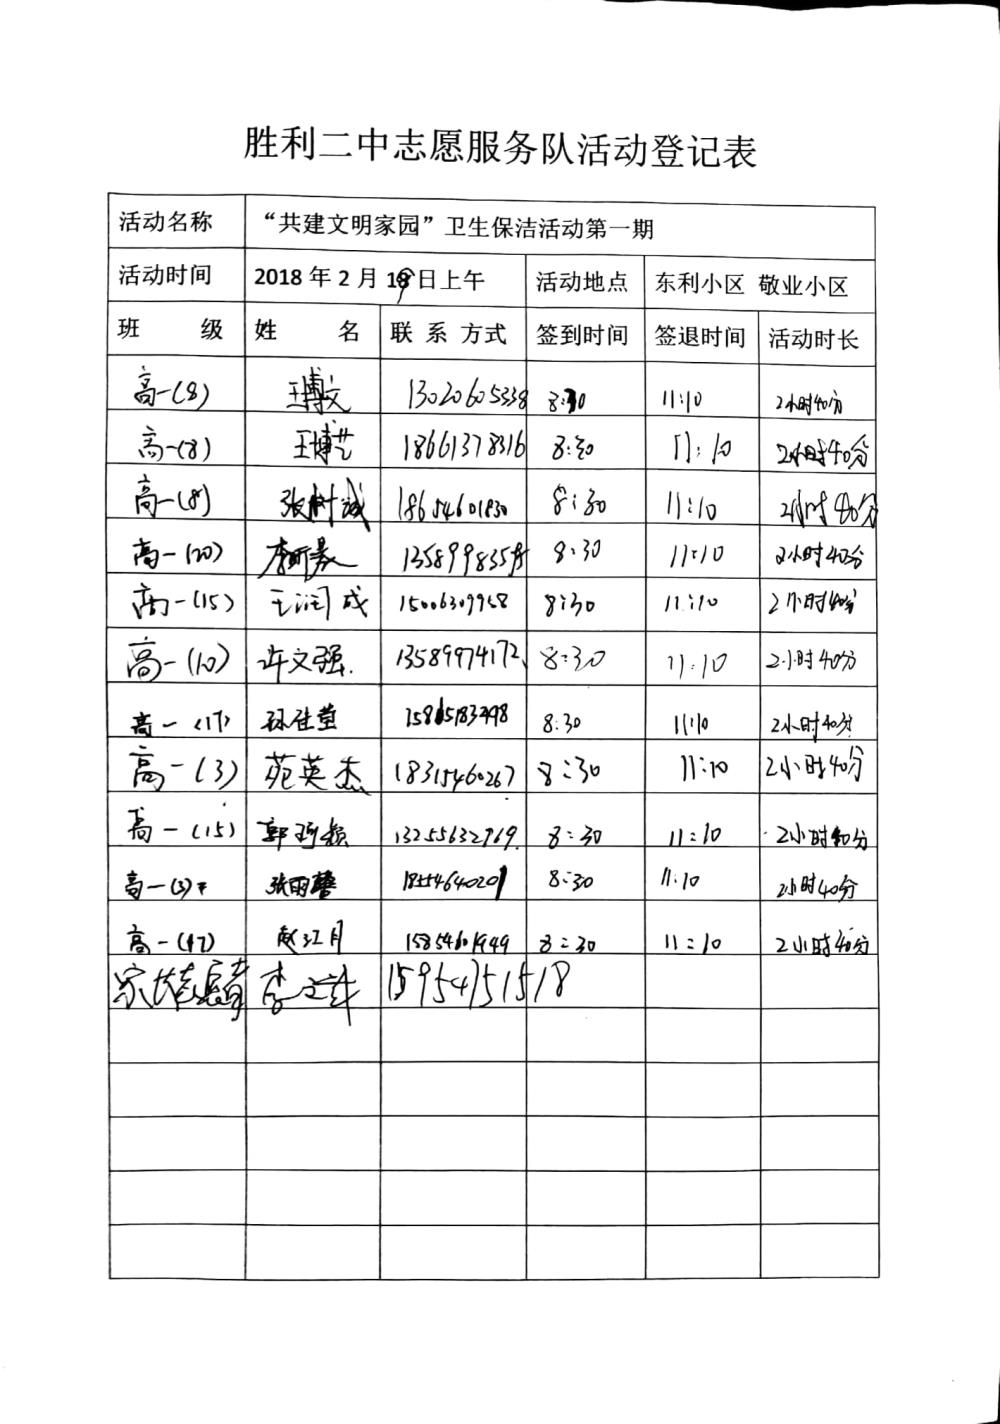 胜利二中志愿服务队活动登记表
活动名称 “共建文明家园”卫生保洁活动第一期
活动时间 2018年2月19日上午 活动地点 东利小区 敬业小区
班 级 姓 名 联 系 方式 签到时间 签退时间 活动时长
高一(8) 王博文 13020605338 8:30 11:10 2小时40分
高一(8) 王博艺 18661378316 8:30 11:10 2小时40分
高一(8) 张树诚 18654601830 8:30 11:10 2小时40分
高一(20) 李 8:30 11:10 2小时40分
高一(15) 王润成 15006309958 8:30 11:10 2小时40分
高一(10) 许文强. 13589974172 8:30 11:10 2小时40分
高一(17) 孙佳莹 8:30 11:10 2小时40分
高一(3) 苑英杰 18315460267 8:30 11:10 2小时40分
高一(15) 郭珂颖 13255632969. 8:30 11:10 2小时40分
高一(3) 张雨馨 18554640201 8:30 11:10 2小时40分
高一(17) 赵江月 15854601949 8:30 11:10 2小时40分
家长志愿者 李 15954751518